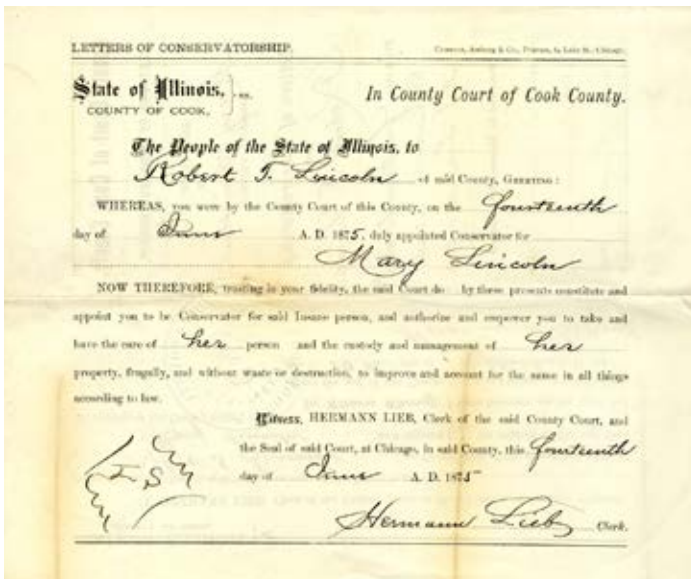 LETTERS OF CONSERVATORSHIP.
State of Illinois, } ss.
COUNTY OF COOK,
In County Court of Cook County.
The People of the State of Illinois, to
Robert T. Lincoln of said County, GREETING:
WHEREAS, you were by the County Court of this County, on the fourteenth
day of June A. D. 1875, duly appointed Conservator for
Mary Lincoln
NOW THEREFORE, trusting in your fidelity, the said Court do by these presents constitute and
appoint you to be Conservator for said Insane person, and authorize and empower you to take and
have the care of her person and the custody and management of her
property, frugally, and without waste or destruction, to improve and account for the same in all things
according to law.
Witness, HERMANN LIEB, Clerk of the said County Court, and
the Seal of said Court, at Chicago, in said County, this fourteenth
day of June A. D. 1875
L. S.
Hermann Lieb Clerk.